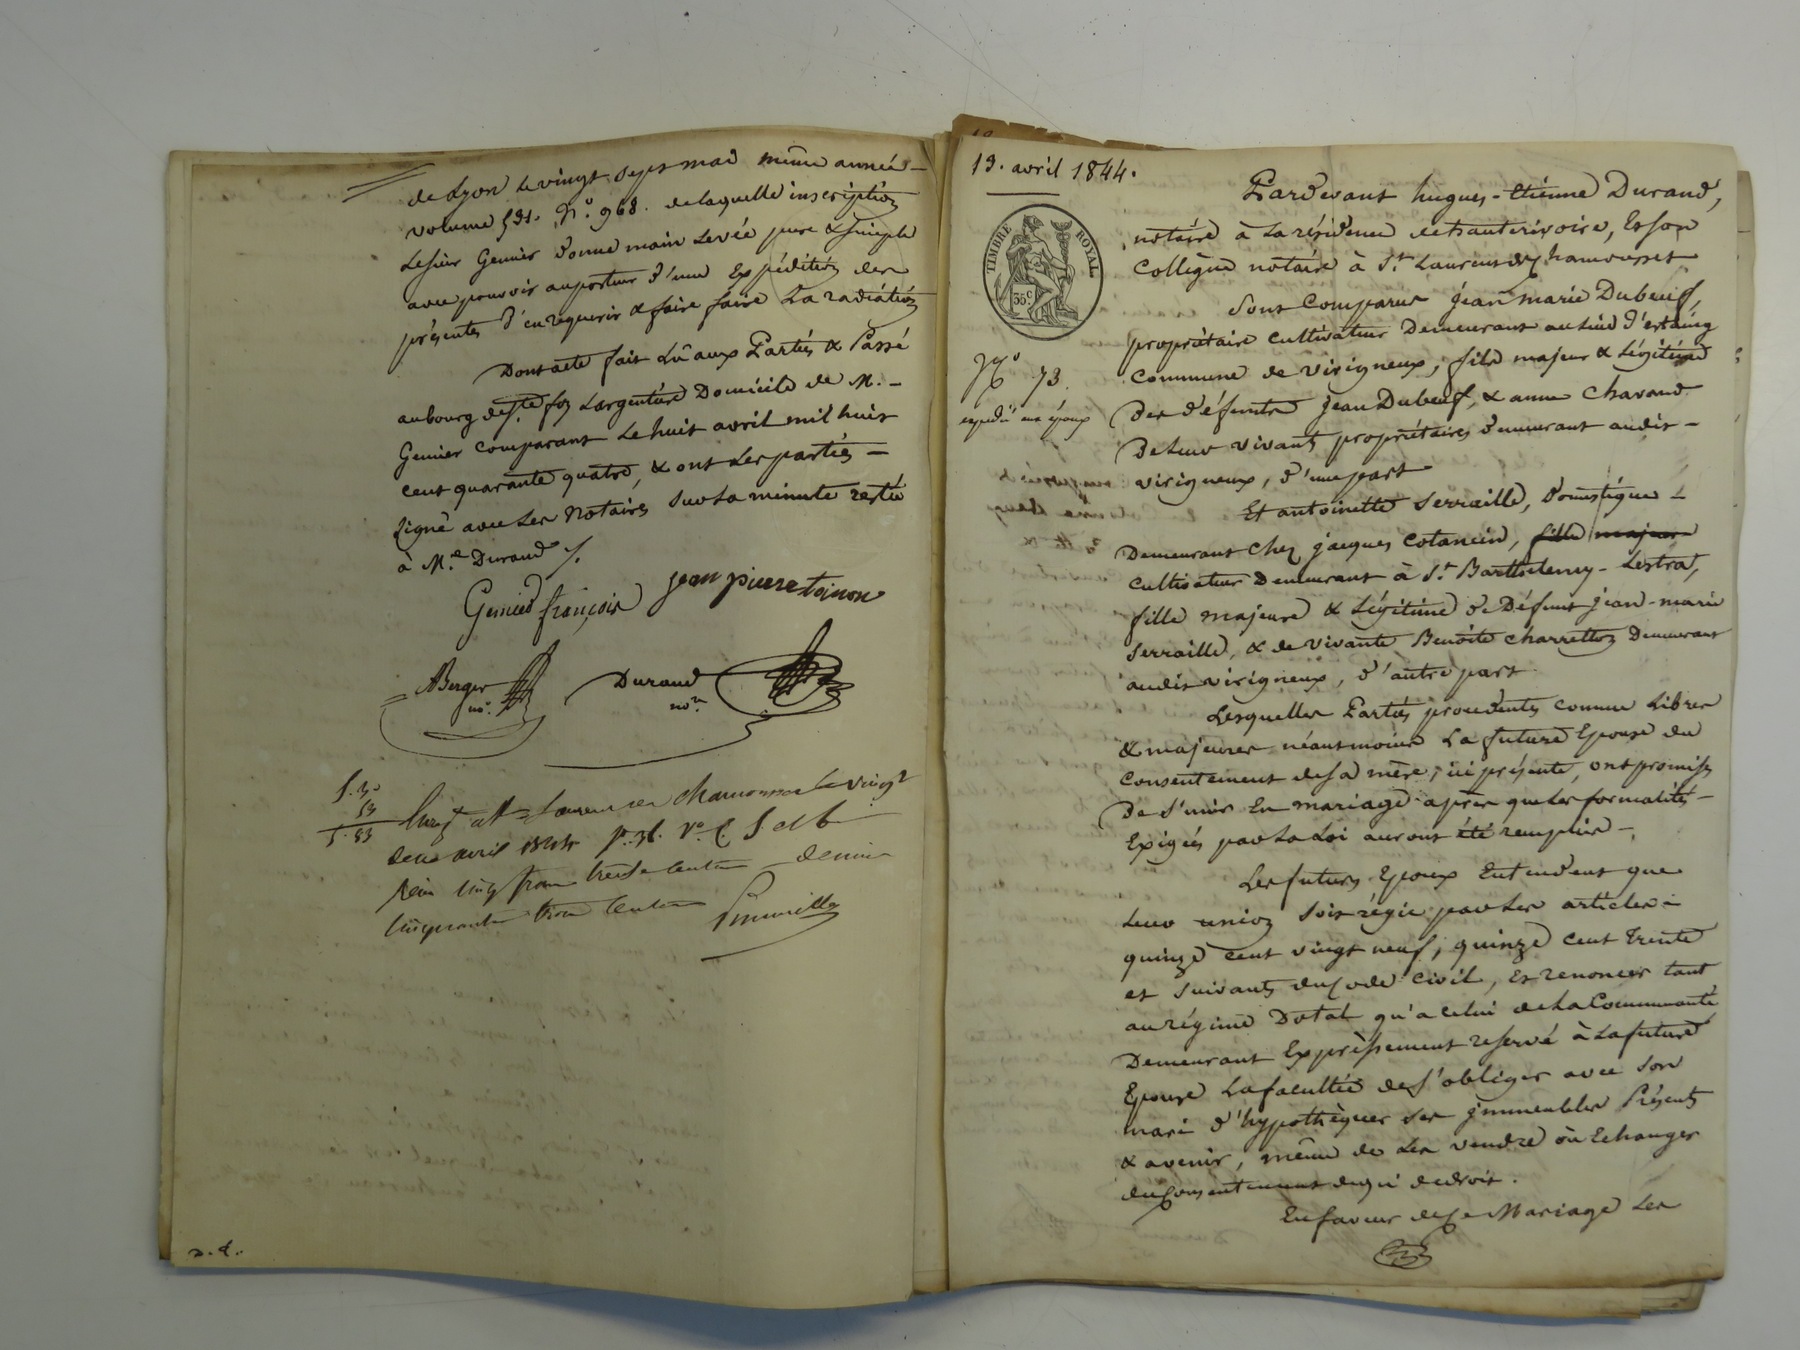 de Lyon le vingt sept mai même année -
volume 591. N.º 968. de laquelle inscription
le sieur Genier donne main levée pure & simple
avec pouvoir au porteur d'une Expédition des
présentes d'en requerir & faire faire la radiation
Dont acte fait Lû aux Parties & Passé
au bourg de Ste foy L'argentière Domicile de M. -
Genier comparant le huit avril mil huit
cent quarante quatre, & ont les parties -
signé avec les Notaires sur la minute restée
à M.e Durand /.
Genier françois jean pierre
ABerger Durand
no.e no.re
5.30
53
5.83
à St Laurent de Chamousset le vingt
deux avril 1844 f.º 36. V.º C. 5 et 6
Reçu cinq francs trente centimes décime
cinquante trois centimes
n. d..
19. avril 1844.
TIMBRE ROYAL
35 C
Pardevant hugues-étienne Durand,
notaire à la résidence de hauterivoire, Et son
Collègue notaire à St. Laurent de chamousset
Sont Comparus jean marie Dubeuf,
propriétaire cultivateur Demeurant au lieu d'estaing
Nº 73.
Commune de virigneux, fils majeur & Légitime
expédié aux époux
Des défunts jean Dubeuf, & anne Chavand
De leur vivants propriétaires demeurant audit -
virigneux, d'une part
Et antoinette Serraille, domestique -
Demeurant chez jacques Cotancin, fille majeure
cultivateur Demeurant à St. Barthélemy-Lestra,
fille majeure & Légitime de Défunt jean-marie
Serraille, & de vivante Benoîte charretton Demeurant
audit virigneux, d'autre part
Lesquelles Parties procedantes comme Libres
& majeures néantmoins la future Epouse du
Consentement de sa mère, ici présente, ont promis
De s'unir En mariage après que les formalités -
Exigées par la Loi auront été remplies -,
Les futurs Epoux Entendent que
Leur union Soit régie par les articles -
quinze cent vingt neuf, quinze cent Trente
et suivants du Code Civil, Et renoncer tant
au régime Dotal qu'a celui de la Communauté
Demeurant Expressement reservé à la future
Epouse La facultée de s'obliger avec son
mari d'hypothèquer ses jmmeubles Présents
& avenir, même de les vendre où Echanger
du Consentement de qui de droit.
En faveur de ce Mariage Les